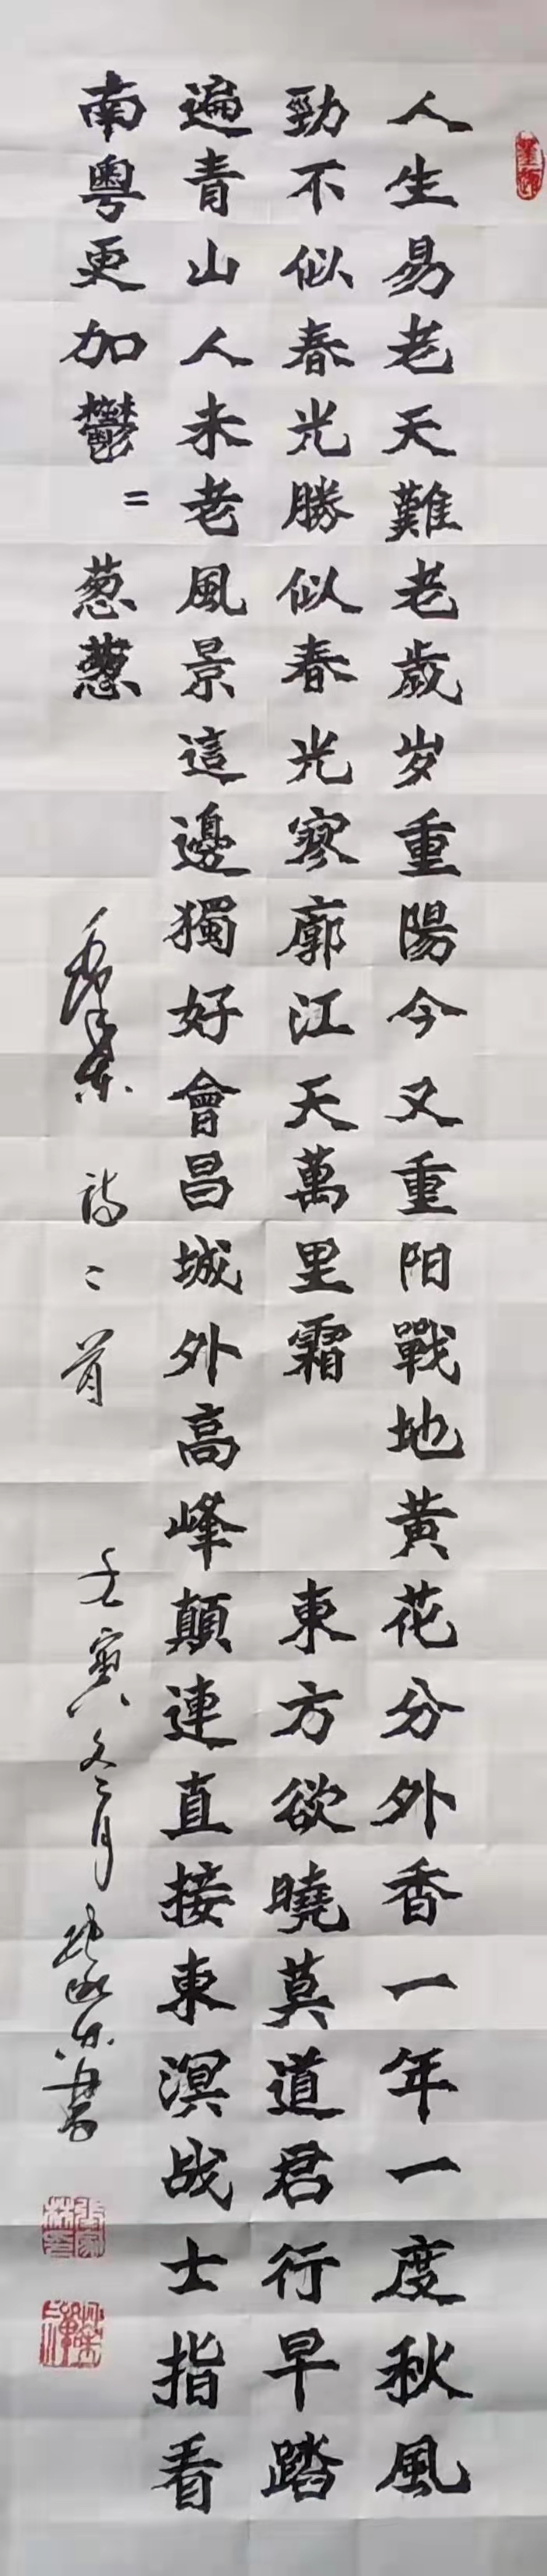 人生易老天難老歲岁重陽今又重阳戰地黄花分外香一年一度秋風
勁不似春光勝似春光寥廓江天萬里霜 東方欲曉莫道君行早踏
遍青山人未老風景這邊獨好會昌城外高峰顛連直接東溟战士指看
南粤更加鬱=葱蔥
毛澤東 詩二首 壬寅冬月 張家林書